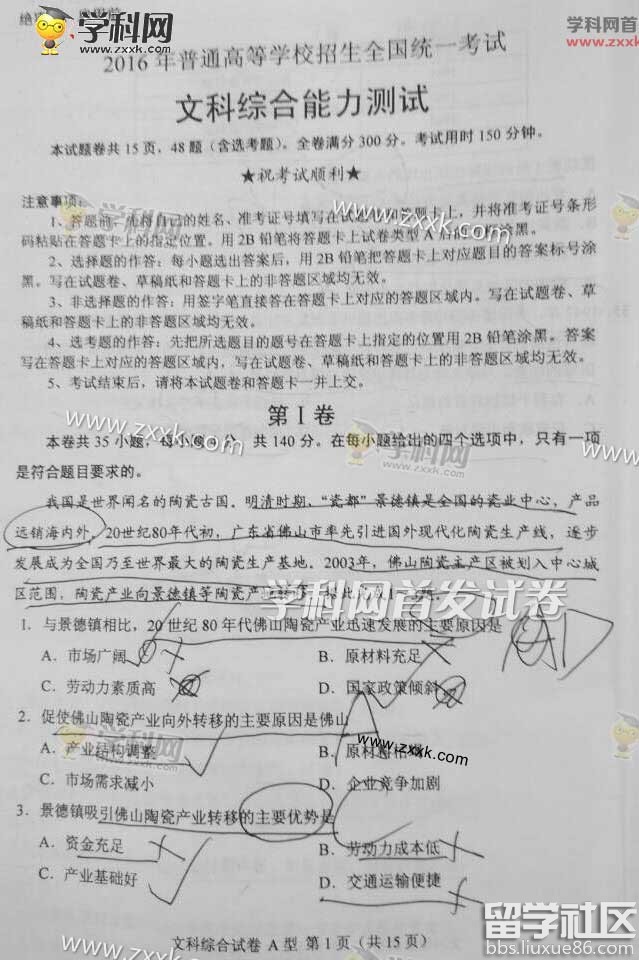 学科网
www.zxxk.com
学科网
www.zxxk.com
绝
2016年普通高等学校招生全国统一考试
文科综合能力测试
本试题卷共15页，48题（含选考题）。全卷满分300分。考试用时150分钟。
★祝考试顺利★
注意事项：
1、答题前，先将自己的姓名、准考证号填写在试题卷和答题卡上，并将准考证号条形
码粘贴在答题卡上的指定位置。用2B铅笔将答题卡上试卷类型A后的方框涂黑。
2、选择题的作答：每小题选出答案后，用2B铅笔把答题卡上对应题目的答案标号涂
黑。写在试题卷、草稿纸和答题卡上的非答题区域均无效。
3、非选择题的作答：用签字笔直接答在答题卡上对应的答题区域内。写在试题卷、草
稿纸和答题卡上的非答题区域均无效。
4、选考题的作答：先把所选题目的题号在答题卡上指定的位置用2B铅笔涂黑。答案
写在答题卡上对应的答题区域内，写在试题卷、草稿纸和答题卡上的非答题区域均无效。
5、考试结束后，请将本试题卷和答题卡一并上交。
第Ⅰ卷
本卷共35小题，每小题 分，共140分。在每小题给出的四个选项中，只有一项
是符合题目要求的。
我国是世界闻名的陶瓷古国。明清时期，“瓷都”景德镇是全国的瓷业中心，产品
远销海内外。20世纪80年代初，广东省佛山市率先引进国外现代化陶瓷生产线，逐步
发展成为全国乃至世界最大的陶瓷生产基地。2003年，佛山陶瓷主产区被划入中心城
区范围，陶瓷产业向景德镇等陶瓷产业转移。据此完成1～3题。
学科网首发试卷
1．与景德镇相比，20世纪80年代佛山陶瓷产业迅速发展的主要原因是
A．市场广阔 B．原材料充足
C．劳动力素质高 D．国家政策倾斜
2．促使佛山陶瓷产业向外转移的主要原因是佛山
A．产业结构调整 B．原材料枯竭
C．市场需求减小 D．企业竞争加剧
3．景德镇吸引佛山陶瓷产业转移的主要优势是
A．资金充足 B．劳动力成本低
C．产业基础好 D．交通运输便捷
文科综合试卷 A型 第1页（共15页）
留学社区
bbs.liuxue86.com